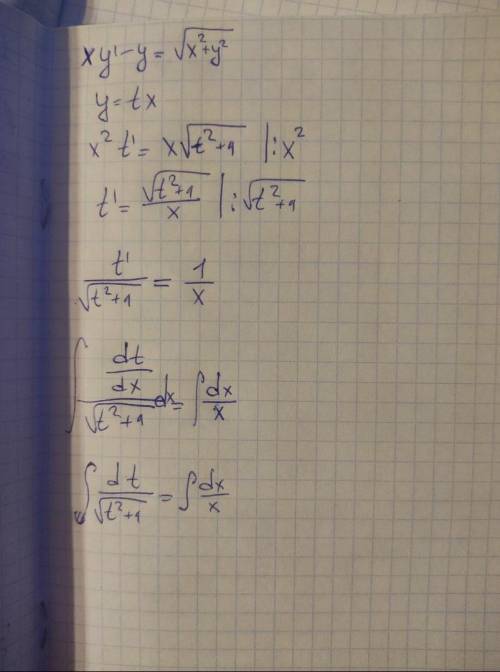 xy'-y=√(x²+y²)
y=tx
x²t'=x√(t²+1) |:x²
t'=√(t²+1)/x |:√(t²+1)
t'/√(t²+1)=1/x
∫(dt/dx)/√(t²+1) dx=∫dx/x
∫dt/√(t²+1)=∫dx/x